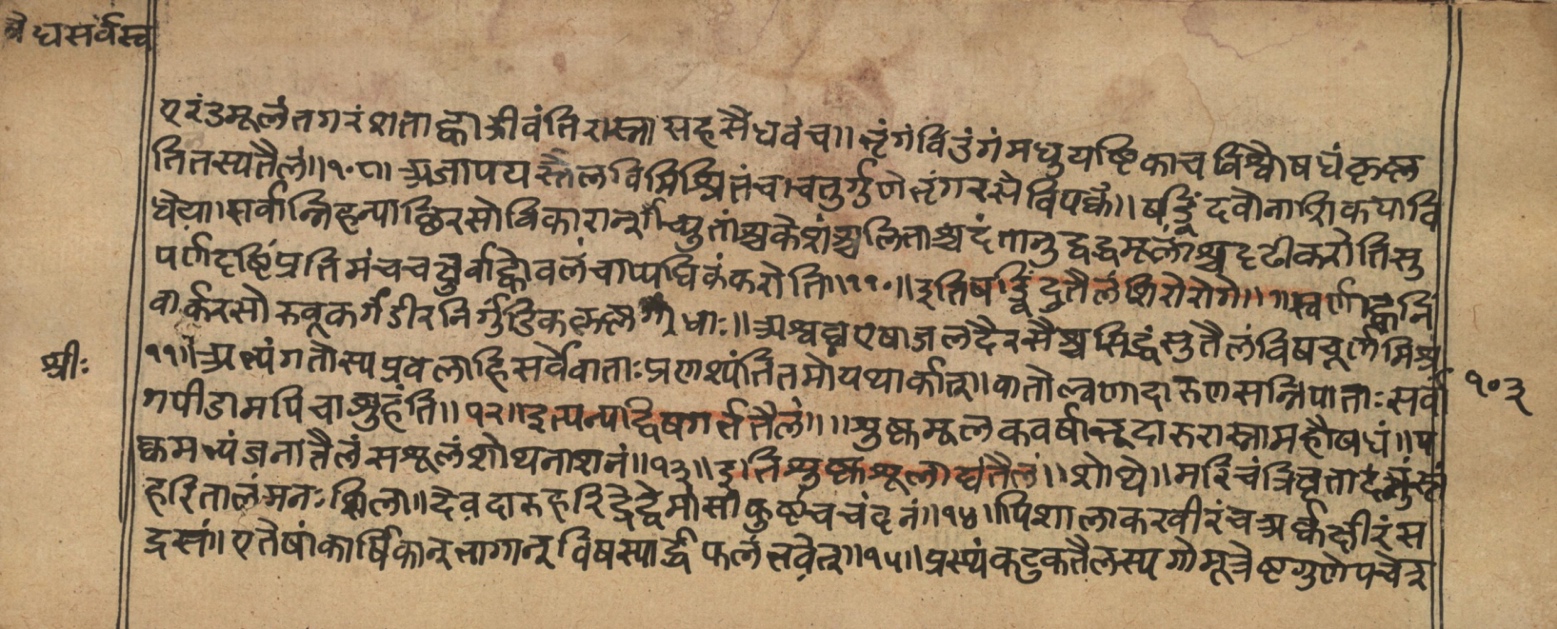 वैद्यसर्वस्व
एरंडमूलं तगरं शताह्वा जीवंति रास्ना सह सैंधवं च॥ भृंगं विडंगं मधुयष्टिका च विश्वौषधं कृष्ण
तितस्य तैलं॥१०॥ अजापयस्तैलविमिश्रितं च चतुर्गुणे भृंगरसे विपक्वं॥ षड्बिंदवो नाशिकया वि
धेया॥ सर्वान्निहन्याच्छिरसो विकारान् च्युतांश्च केशांश्चलिताश्च दंतान् दृढीकरोति सु
पर्णदृष्टिं प्रतिमं च चक्षुर्वाह्वोवलं चाप्यधिकं करोति॥११०॥ इति षड्बिंदुतैलं शिरोरोगे॥
वार्करसो रुवूकगंडीरनिर्गुंडिक धाः॥ अश्वघ्न एषां जलदै रसैश्च सिद्धं सु तैलं विषचूर्णमिश्रं
११॥ अभ्यंगतोस्य प्रवला हि सर्वे वाताः प्रणश्यंति तमो यथार्कात्॥ वातोल्वणा दारुण सन्निपाताः सर्वां
गपीडामपि चाशु हंति॥१२॥ इत्यन्यद्विषगर्भतैलं॥ ॥ शुष्कमूलकवर्षाभूदारुरास्नामहौषधं॥ प
क्वमभ्यंजनात्तैलं सशूलं शोथनाशनं॥१३॥ इति शुष्कमूलाद्यं तैलं॥ शोथे॥ मरिचं त्रिवृता
हरितालं मनःशिला॥ देवदारु हरिद्रे द्वे मांसी कुष्ठं च चंदनं॥१४॥ विशाला करवीरं च अर्कक्षीरं स
एतेषां कार्षिकान् भागान् विषस्यार्द्धं फलं भवेत्॥१५॥ प्रस्थं कटुकतैलस्य गोमूत्रेष्टगुणे पचेत्
श्रीः
१०३